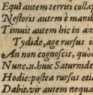 Equi autem territi
Nestoris autem è manib
Timuit autem hic in an
Tydide, age rursus
An non cognoscis, quod
Nunc
Hodie: postea rursus
Dabit: vir autem